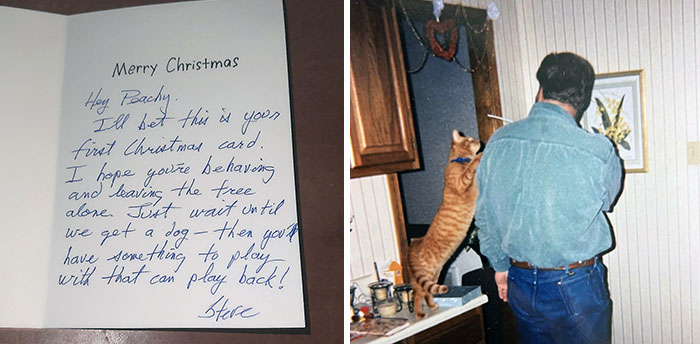 Merry Christmas
Hey Peachy.
I'll bet this is your
first Christmas card.
I hope you're behaving
and leaving the tree
alone. Just wait until
we get a dog — then you'll
have something to play
with that can play back!
Steve